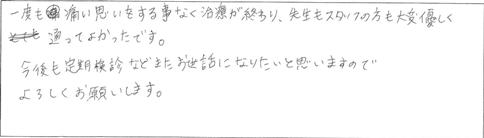 一度も痛い思いをする事なく治療が終わり、先生もスタッフの方も大変優しく
通ってよかったです。
今後も定期検診などまたお世話になりたいと思いますので
よろしくお願いします。